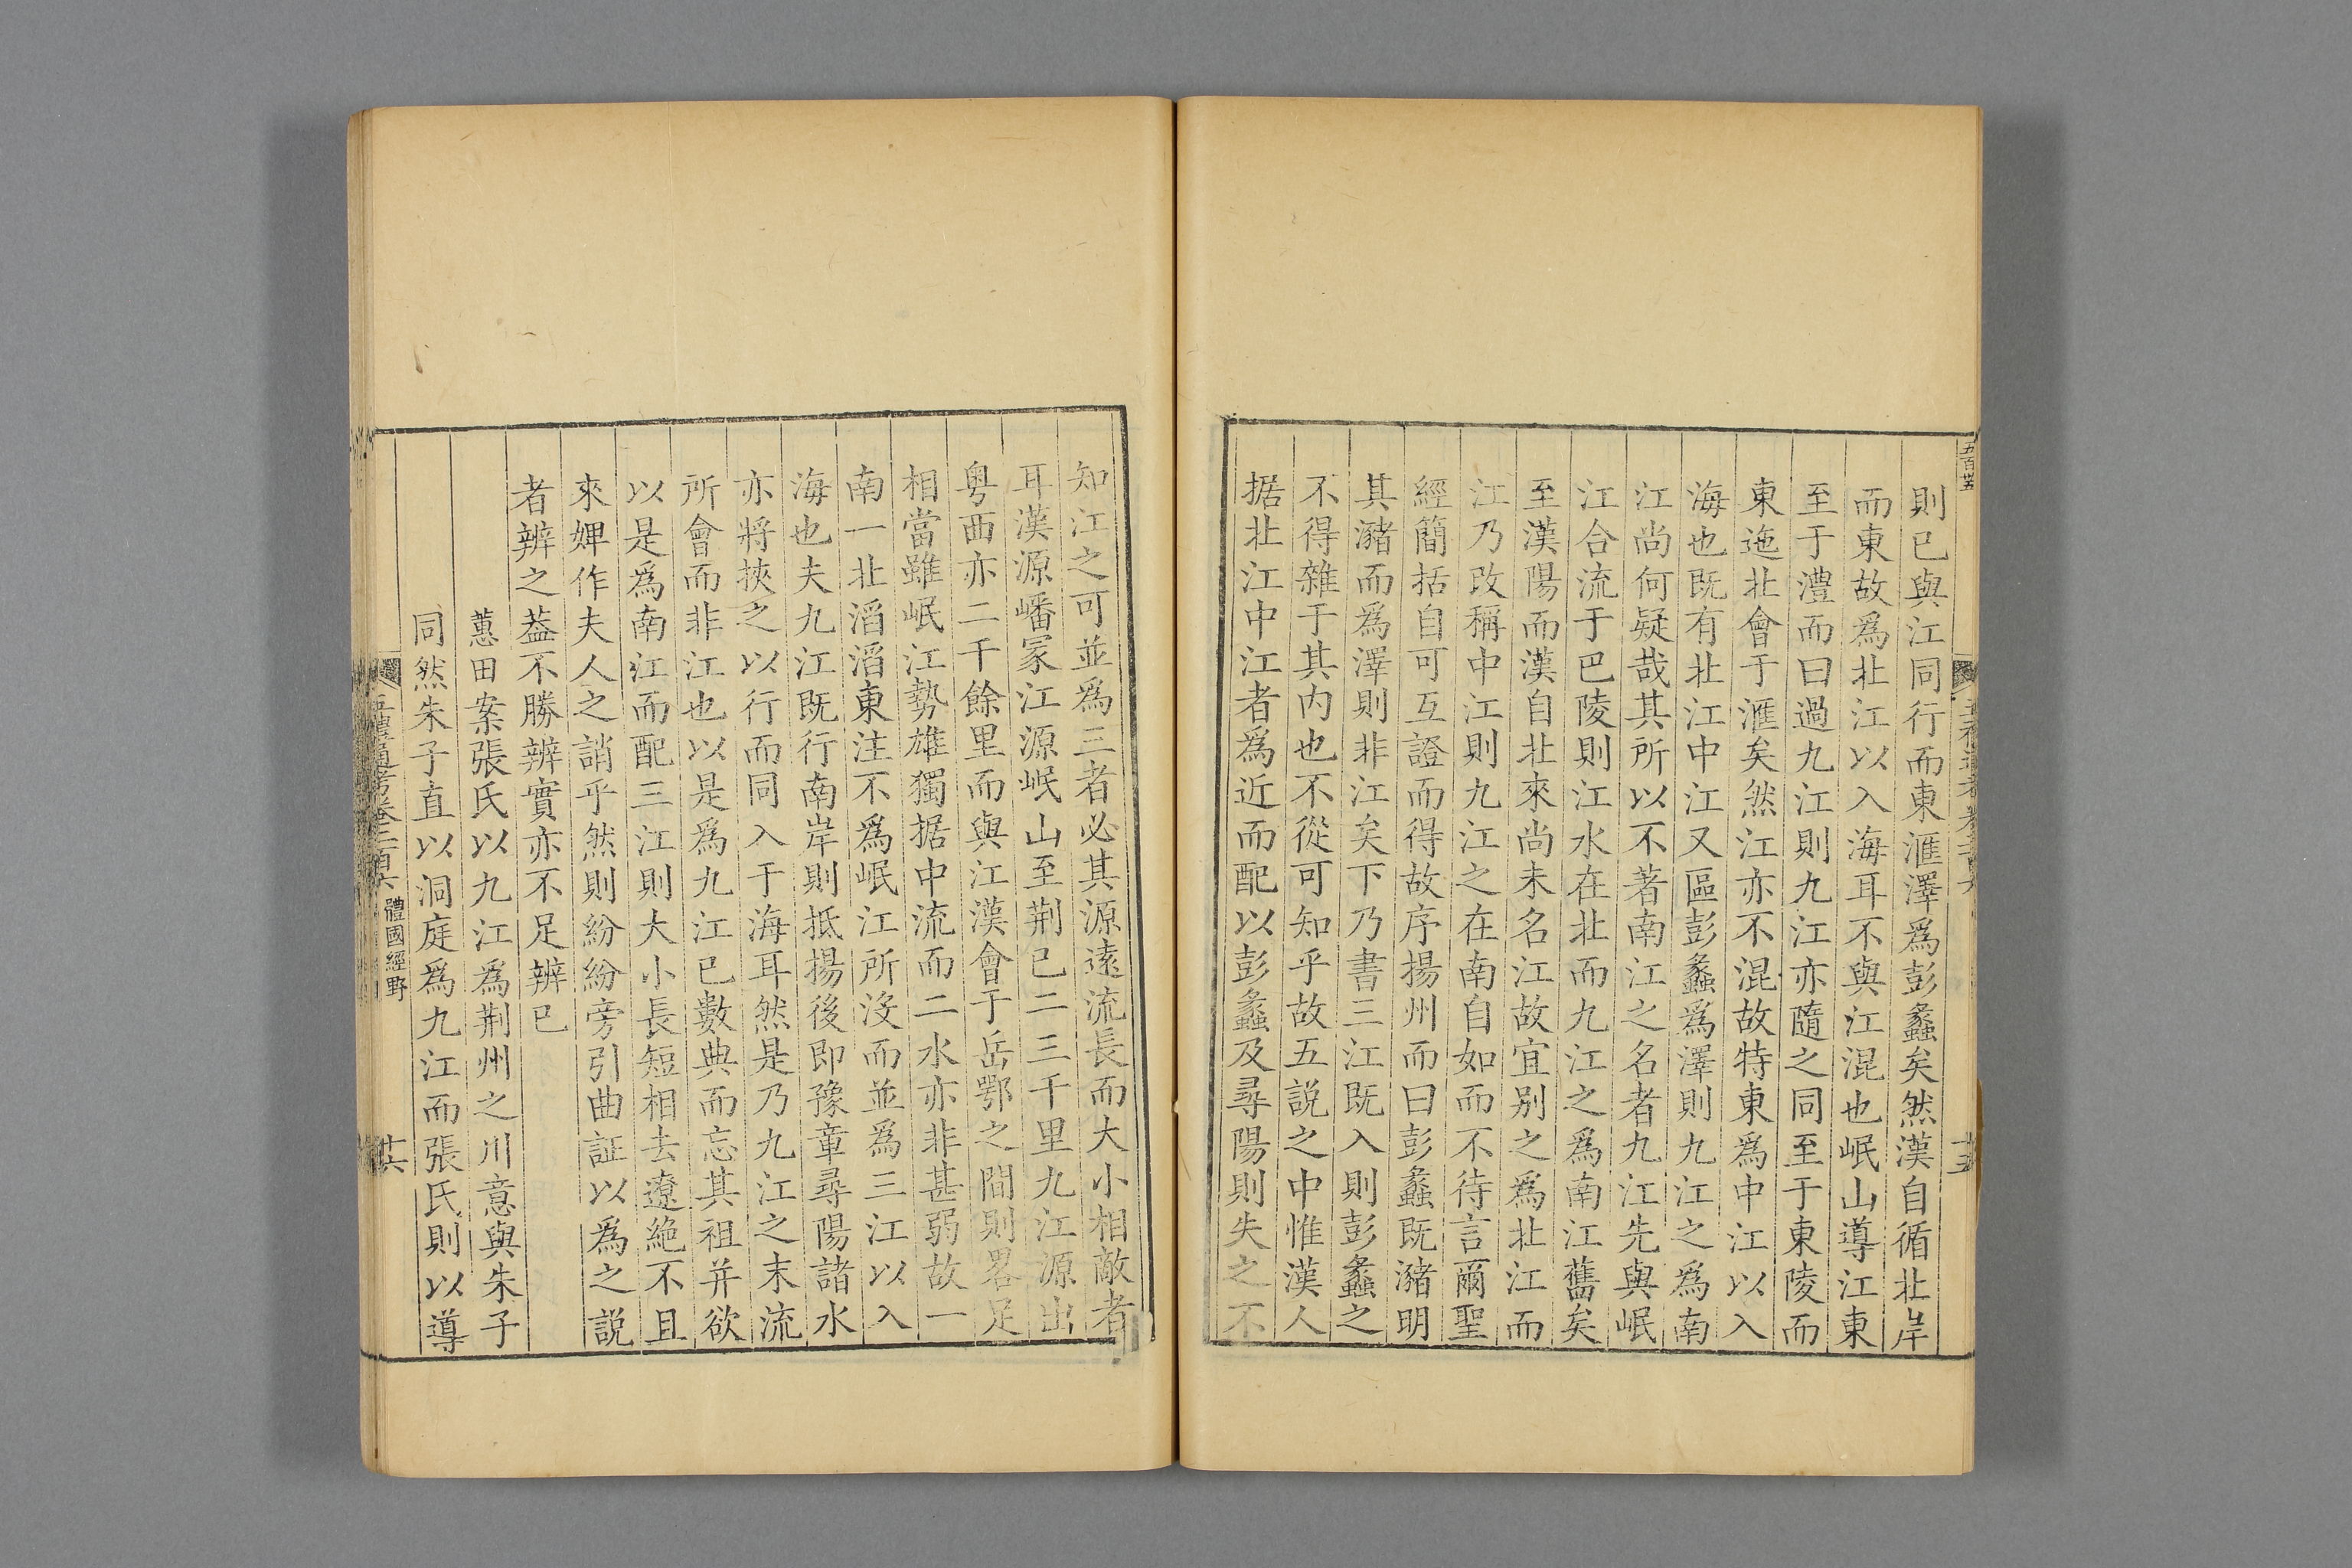 則已與江同行而東滙澤爲彭蠡矣然漢自循北岸
而東故爲北江以入海耳不與江混也岷山導江東
至于澧而曰過九江則九江亦隨之同至于東陵而
東迤北會于滙矣然江亦不混故特東爲中江以入
海也既有北江中江又區彭蠡爲澤則九江之爲南
江尚何疑哉其所以不著南江之名者九江先與岷
江合流于巴陵則江水在北而九江之爲南江舊矣
至漢陽而漢自北來尚未名江故宜别之爲北江而
江乃改稱中江則九江之在南自如而不待言爾聖
經簡括自可互證而得故序揚州而曰彭蠡既瀦明
其瀦而爲澤則非江矣下乃書三江既入則彭蠡之
不得雜于其内也不從可知乎故五説之中惟漢人
据北江中江者爲近而配以彭蠡及尋陽則失之不
知江之可並爲三者必其源遠流長而大小相敵者
耳漢源嶓冢江源岷山至荆已二三千里九江源出
粤西亦二千餘里而與江漢會于岳鄂之間則畧足
相當雖岷江勢雄獨据中流而二水亦非甚弱故一
南一北滔滔東注不爲岷江所沒而並爲三江以入
海也夫九江既行南岸則抵揚後即豫章尋陽諸水
亦將挾之以行而同入于海耳然是乃九江之末流
所會而非江也以是爲九江已數典而忘其祖并欲
以是爲南江而配三江則大小長短相去遼絶不且
來婢作夫人之誚乎然則紛紛旁引曲証以爲之説
者辨之葢不勝辨實亦不足辨已
蕙田案張氏以九江爲荆州之川意與朱子
同然朱子直以洞庭爲九江而張氏則以導
體國經野